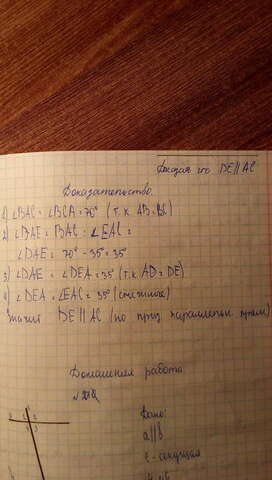 Доказать что DE||AC
Доказательство.
1) ∠BAC = ∠BCA = 70° (т.к. AB=BC)
2) ∠DAE = BAC - ∠EAC =
∠DAE = 70° - 35 = 35°
3) ∠DAE = ∠DEA = 35° (т.к. AD = DE)
4) ∠DEA = ∠EAC = 35° (смежные)
значит DE||AC (по приз. параллельн прям)
Домашняя работа
Дано:
a||b
c - секущая